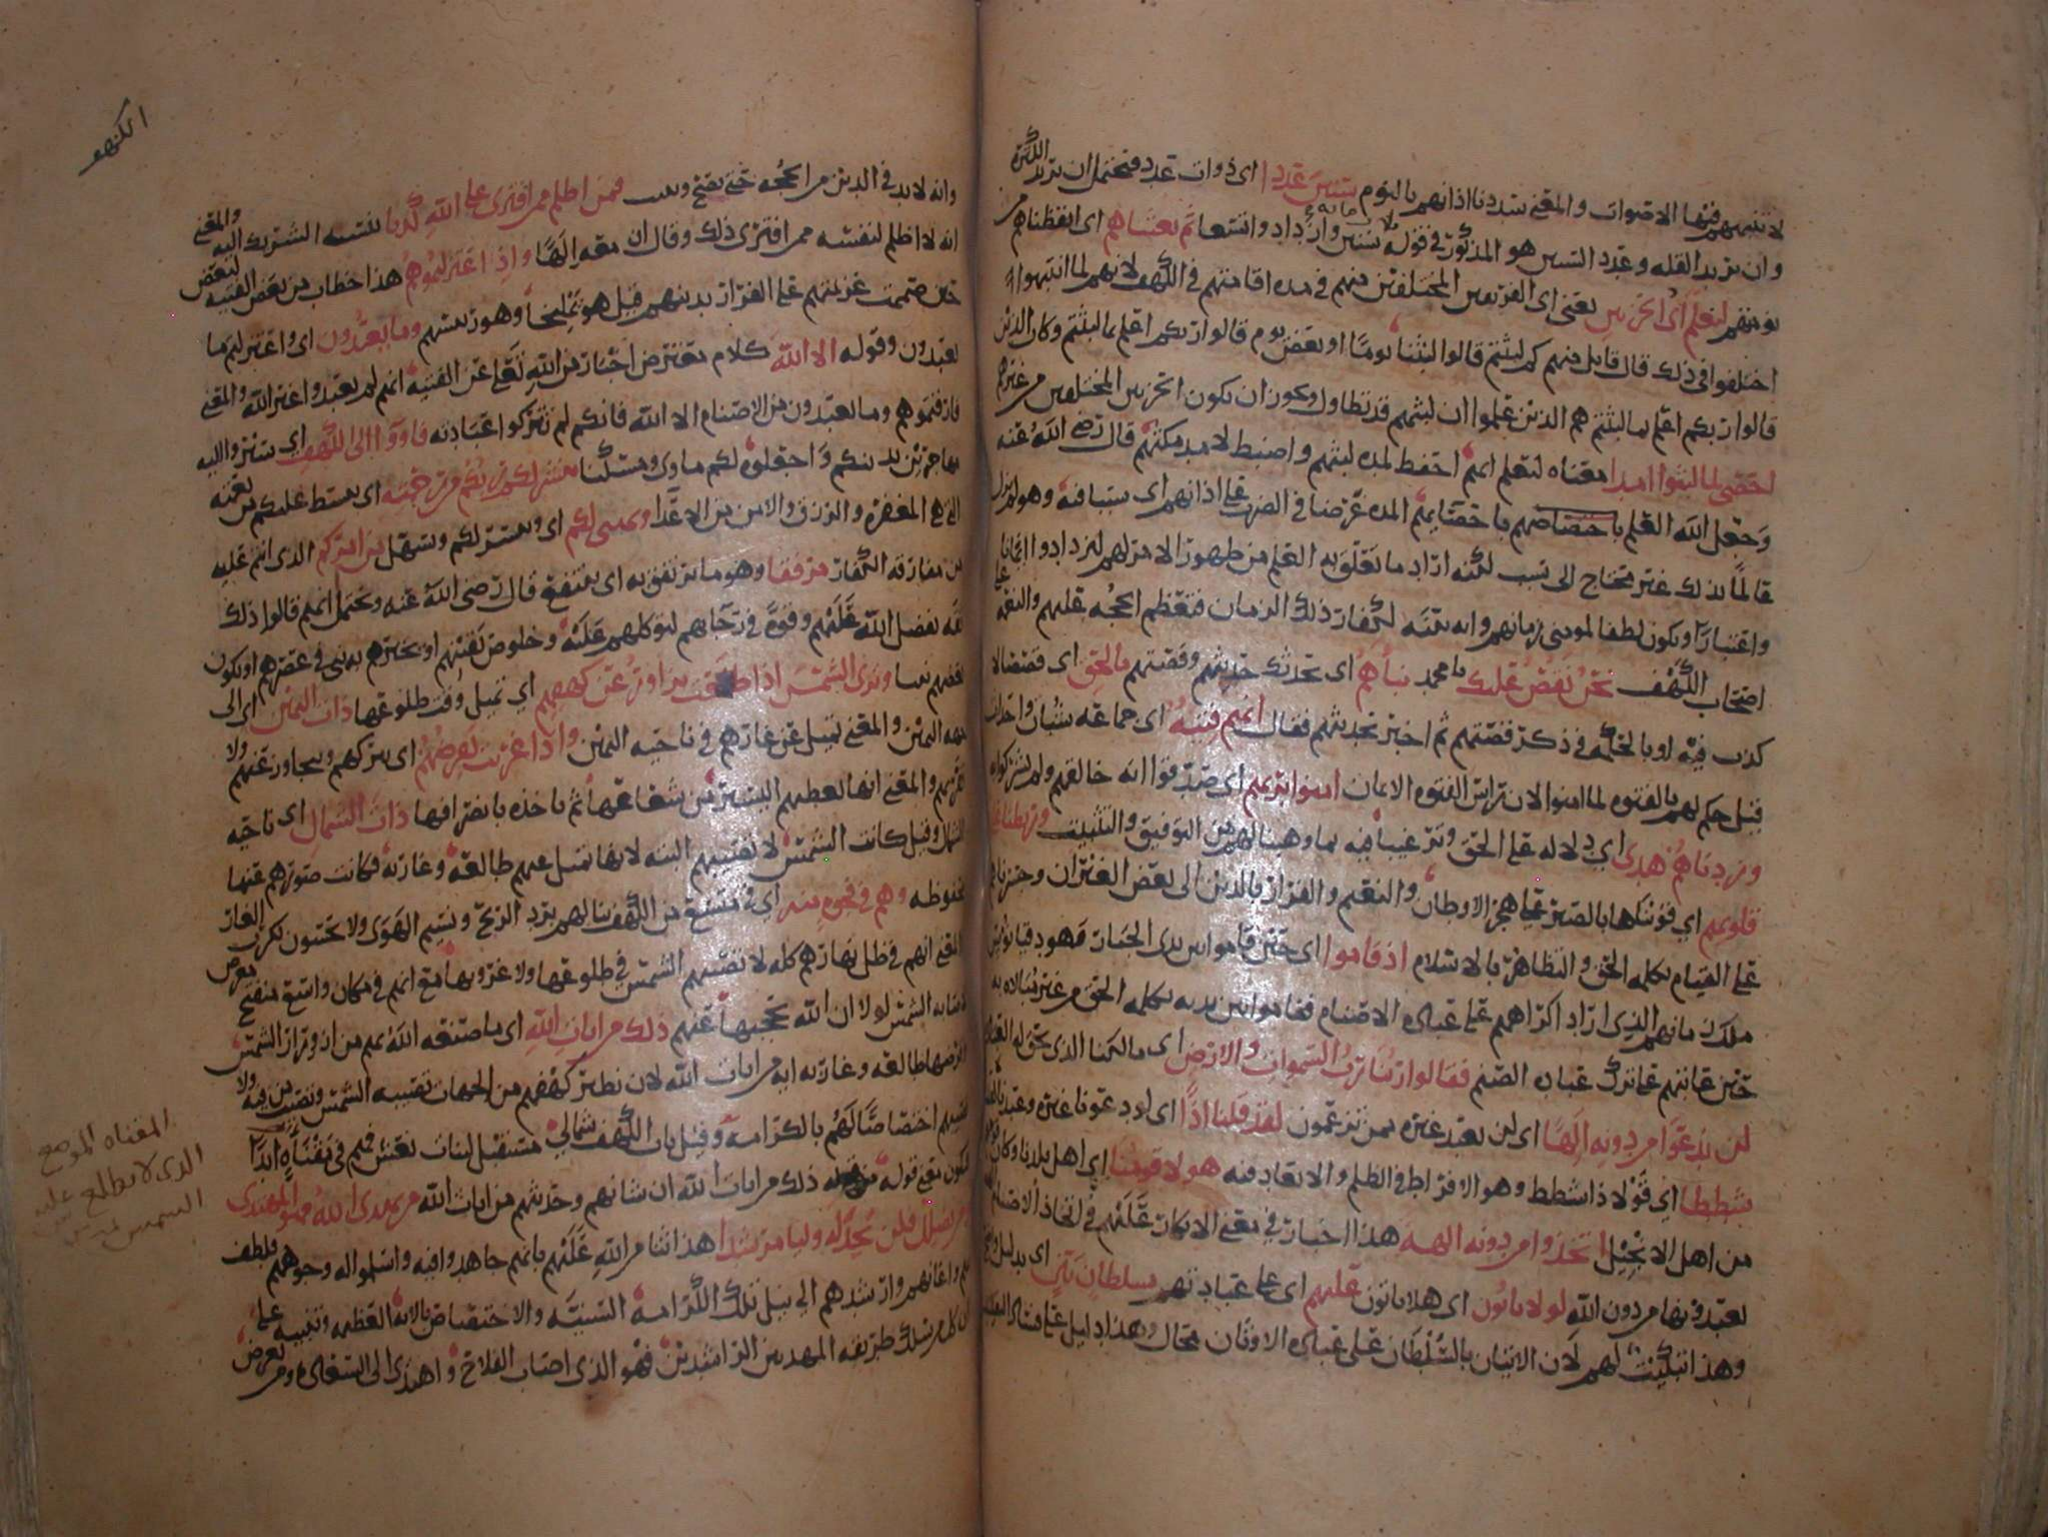 لا تنبههم فيها الاصوات والمعنى سددنا اذانهم بالنوم سنين عددا اى ذوات عدد فيحتمل ان يريد الكثرة
وان يريد القله وعدد السنين هو المذكور في قوله ثلاث مايه سنين وازدادوا تسعا ثم بعثناهم اى ايقظناهم من
نومتهم لنعلم اى الحزبين يعنى اى الفريقين المختلفين منهم في مده اقامتهم في الكهف لانهم لما انتبهوا
اختلفوا في ذلك قال قايل منهم كم لبثتم قالوا لبثنا يوما او بعض يوم قالوا ربكم اعلم بما لبثتم وكان الذين
قالوا ربكم اعلم بما لبثتم هم الذين علموا ان لبثهم قد تطاول ويجوز ان يكون الحزبين المختلفين من غيرهم
احصى لما لبثوا امدا معناه لنعلم ايهم احفظ لمده لبثهم واضبط لامد مكثهم قال رضي الله عنه
وجعل الله العلم باحصائهم المده غرضا في الضرب على اذانهم اى سببا فيه وهو لم يزل
عالما بذلك غير محتاج الى سبب لكنه اراد ما تعلق به العلم من ظهور الامر لهم ليزدادوا ايمانا
واعتبارا ويكون لطفا لمومنى زمانهم وايه بينه لكفار ذلك الزمان فتعظم الحجه عليهم والنعمه على
اصحاب الكهف نحن نقص عليك يا محمد نباهم اى نحدثك حديثهم وقصتهم بالحق اى قصصا لا
كذب فيه او بالحكمه في ذكر قصتهم ثم اخبر بحديثهم فقال انهم فتيه اى جماعه شبان واحداث
قيل حكم لهم بالفتوه لما امنوا لان راس الفتوه الايمان امنوا بربهم اى صدقوا انه خالقهم ولم يشركوا به
وزدناهم هدى اي دلاله على الحق وترغيبا فيه بما وهبنا لهم من التوفيق والتثبيت وربطنا على
قلوبهم اي قويناها بالصبر على هجر الاوطان والنعيم والفرار بالدين الى بعض الغيران وجسرناهم
على القيام بكلمه الحق والتظاهر بالاسلام اذ قاموا اى حين قاموا بين يدى الجبار
ملك زمانهم الذي اراد اكراههم على عباده الاصنام فقاموا بين يديه بكلمه الحق من غير مبالاه به
حين عاتبهم على ترك عباده الصنم فقالوا ربنا رب السموات والارض اى مالكنا الذى
لن ندعوا من دونه الها اى لن نعبد غيره ممن تزعمون لقد قلنا اذا اى لو دعونا غيره
شططا اي قولا ذا شطط وهو الافراط في الظلم والابعاد فيه هولا قومنا اي اهل بلدنا وكان
من اهل الانجيل اتخذوا من دونه الهه هذا اخبار في معنى الانكار عليهم في اتخاذ الاصنام
من دون الله لولا ياتون اى هلا ياتون عليهم اى على عبادتهم بسلطان بين اى بدليل
وهذا تبكيت لهم لان الاتيان بالسلطان على عباده الاوثان محال وهذا دليل على
الكهف
وانه لابد في الدين من الحجه حتى يصح ويثبت فمن اظلم ممن افترى على الله كذبا بنسبه الشريك اليه والمعنى
انه لا اظلم لنفسه ممن افترى ذلك وقال ان معه الها واذ اعتزلتموهم هذا خطاب من بعض الفتيه لبعض
حين صممت عزيمتهم على الفرار بدينهم قيل هو تمليخا وهو رئيسهم وما يعبدون اى واعتزلتم ما
يعبدون وقوله الا الله كلام معترض اخبار من الله تعلى عن الفتيه انهم لم يعبدوا غير الله والمعنى
فارقتموهم وما يعبدون من الاصنام الا الله فانكم لم تتركوا عبادته فاووا الى الكهف اي سيروا اليه
مهاجرين بدينكم واجعلوه لكم ماوى ومسكنا ينشر لكم ربكم من رحمته اى يبسط عليكم من نعمته
المغفره والرزق والامن من الاعدا ويهيى لكم اى ويسر لكم وسهل من امركم الذى انتم عليه
من مفارقه الكفار مرفقا وهو ما يرتفق به اى ينتفع قال رضى الله عنه ويحتمل انهم قالوا ذلك
ثقه بفضل الله عليهم وقوه في رجايهم لتوكلهم عليه وخلوص يقينهم او يخبرهم به نبى في عصرهم او يكون
بعضهم نبيا وترى الشمس اذا طلعت تزاور عن كهفهم اي تميل وقت طلوعها ذات اليمين اي الى
جهه اليمين والمعنى تميل عن غارهم في ناحيه اليمين واذا غربت تقرضهم اى تتركهم وتجاوز عنهم ولا
تقربهم والمعنى انها تعطيهم اليسير من شعاعها ثم ياخذه بانصرافها ذات الشمال اى ناحيه
الشمال وقيل كانت الشمس لا تصيبهم البته لانها تميل عنهم طالعه وغاربه فكانت صورهم عنها
محفوظه وهم في فجوه منه اي في متسع من الكهف ينالهم برد الريح ونسيم الهوى ولا يحسون بكرب الغار
والمعنى انهم في ظل نهارهم كله لا تصيبهم الشمس في طلوعها ولا غروبها مع انهم في مكان واسع منفتح معرض
لاصابه الشمس لولا ان الله يحجبها عنهم ذلك من ايات الله اى ما صنعه الله بهم من ازورار الشمس
وقرضها طالعه وغاربه ايه من ايات الله لان من الجهات تصيبه الشمس وتصيب من فيه ولا
تصيبهم اختصاصا لهم بالكرامه وقيل باب الكهف شمالي مستقبل لبنات نعش فهم في مقناه ابدا
فيكون معنى قوله ذلك من ايات الله ان شانهم وحديثهم من ايات الله من يهدى الله فهو المهتدى
ومن يضلل فلن تجد له وليا مرشدا هذا ثنا من الله عليهم بانهم جاهدوا فيه واسلموا له وجوههم فلطف
بهم واعانهم وارشدهم الى نيل تلك الكرامه السنيه والاختصاص بالايه العظيمه وتنبيه على
ان كل من سلك طريقه المهديين الراشدين فهو الذى اصاب الفلاح واهتدى الى السعاده ومن تعرض
المقناه الموضع
الذى لا تطلع عليه
الشمس